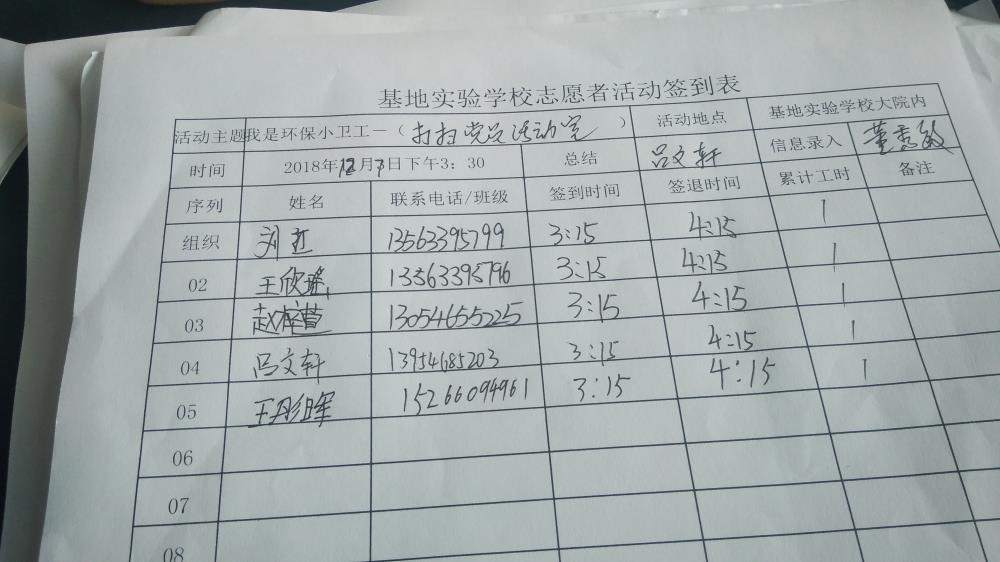 基地实验学校志愿者活动签到表
活动主题 我是环保小卫工－（ 打扫党员活动室 ） 活动地点 基地实验学校大院内
时间 2018年12月7日下午3：30 总结 吕文轩 信息录入 董秀敏
序列 姓名 联系电话/班级 签到时间 签退时间 累计工时 备注
组织 刘红 13563395799 3:15 4:15 1
02 王欣瑶 13563395796 3:15 4:15 1
03 赵梓萱 13054655225 3:15 4:15 1
04 吕文轩 13954685203 3:15 4:15 1
05 王彤晖 15266094961 3:15 4:15 1
06
07
08